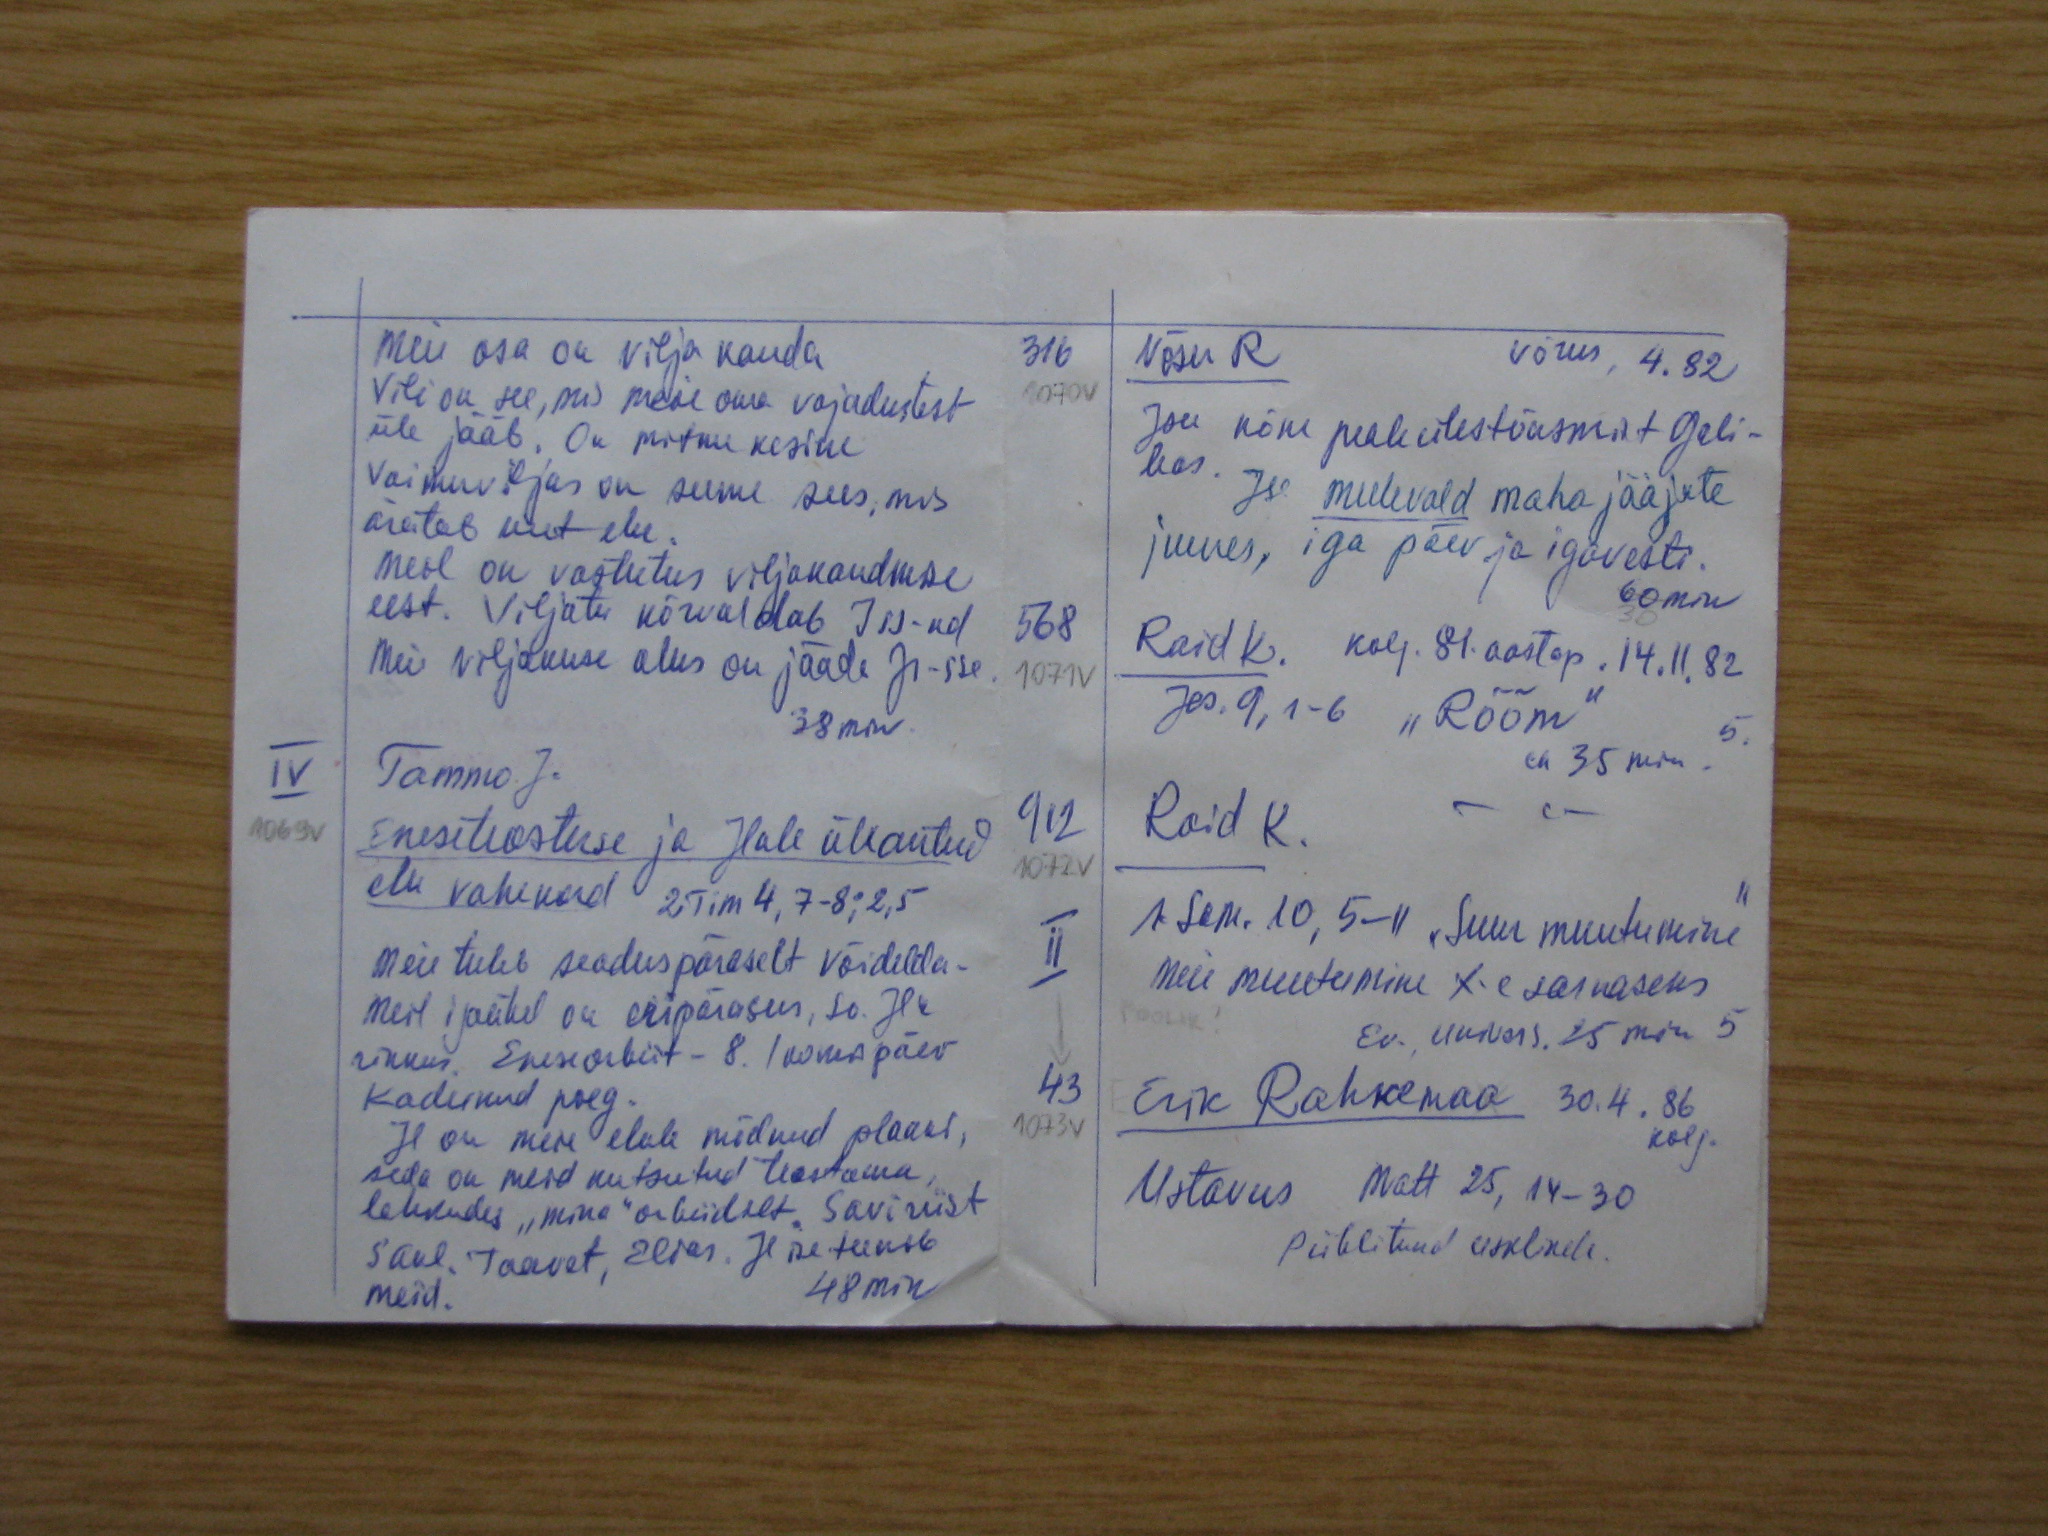 Meie osa on vilja kanda
Vili on see, mis meie oma vajadustest
üle jääb. On mitmekesine
Vaimuviljas on seeme sees, mis
äratab uut elu.
Meil on vastutus viljakandmise
eest. Viljatu kõrvaldab Iss-nd
Meie viljakuse alus on jääda Js-sse.
38 min.
IV
1069V
Tammo J.
Eneseteostuse ja Jlale ülkantud
elu vahekord 2 Tim 4, 7-8; 2,5
Meie tuleb seaduspäraselt võidelda-
Meil igaühel on eripärasus, so. Jla
rikkus. Enese orbiit - 8.
Kadunud poeg.
Jl on meie elule mõelnud plaani,
seda on meid kutsutud teostama,
lahkudes „mina" orbiidilt. Saviriist
Saul. Taavet, Elias. Jl ise teenib
meid. 48 min
316
1070V
Nõsu R Võrus, 4.82
Jsu kõne peale ülestõusmist Gali-
leas.
Jsa meelevald maha jääjate
juures, iga päev ja igavesti.
60 min
30
568
1071V
Raid K. kolg. 81. aastap. 14.11.82
Jes. 9, 1-6 „Rõõm"
ca 35 min. 5.
912
1072V
Raid K. — " —
1 Sam. 10, 5-11 „Suur muutumine"
Meie muutumine X-e sarnaseks
poolik!
Ev. univers. 25 min 5
II
43
1073V
Erik Rahkemaa 30.4.86
kolg.
Ustavus Matt 25, 14-30
Piiblitund usklikele.